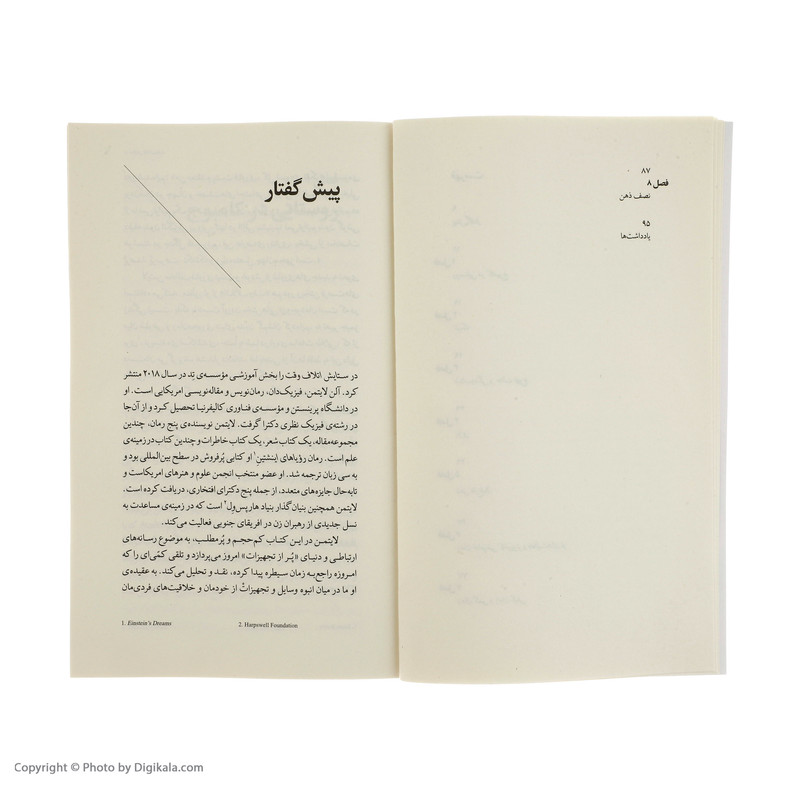 ۸۷
فصل ۸
نصف ذهن
۹۵
یادداشت‌ها
پیش گفتار
در ستایش اتلاف وقت را بخش آموزشی مؤسسه‌ی تِد در سال ۲۰۱۸ منتشر
کرد. آلن لایتمن، فیزیک‌دان، رمان‌نویس و مقاله‌نویسی امریکایی است. او
در دانشگاه پرینستن و مؤسسه‌ی فناوری کالیفرنیا تحصیل کرد و از آن‌جا
در رشته‌ی فیزیک نظری دکترا گرفت. لایتمن نویسنده‌ی پنج رمان، چندین
مجموعه‌مقاله، یک کتاب شعر، یک کتاب خاطرات و چندین کتاب در زمینه‌ی
علم است. رمان رؤیاهای اینشتین۱ او کتابی پُرفروش در سطح بین‌المللی بود و
به سی زبان ترجمه شد. او عضو منتخب انجمن علوم و هنرهای امریکاست و
تابه‌حال جایزه‌های متعدد، از جمله پنج دکترای افتخاری، دریافت کرده است.
لایتمن همچنین بنیان‌گذار بنیاد هارپس‌وِل۲ است که در زمینه‌ی مساعدت به
نسل جدیدی از رهبران زن در افریقای جنوبی فعالیت می‌کند.
لایتمن در این کتاب کم‌حجم و پُرمطلب، به موضوع رسانه‌های
ارتباطی و دنیای «پُر از تجهیزات» امروز می‌پردازد و تلقی کمّی‌ای را که
امروزه راجع‌به زمان سیطره پیدا کرده، نقد و تحلیل می‌کند. به عقیده‌ی
او ما در میان انبوه وسایل و تجهیزاتْ از خودمان و خلاقیت‌های فردی‌مان
1. Einstein's Dreams 2. Harpswell Foundation
Copyright © Photo by Digikala.com